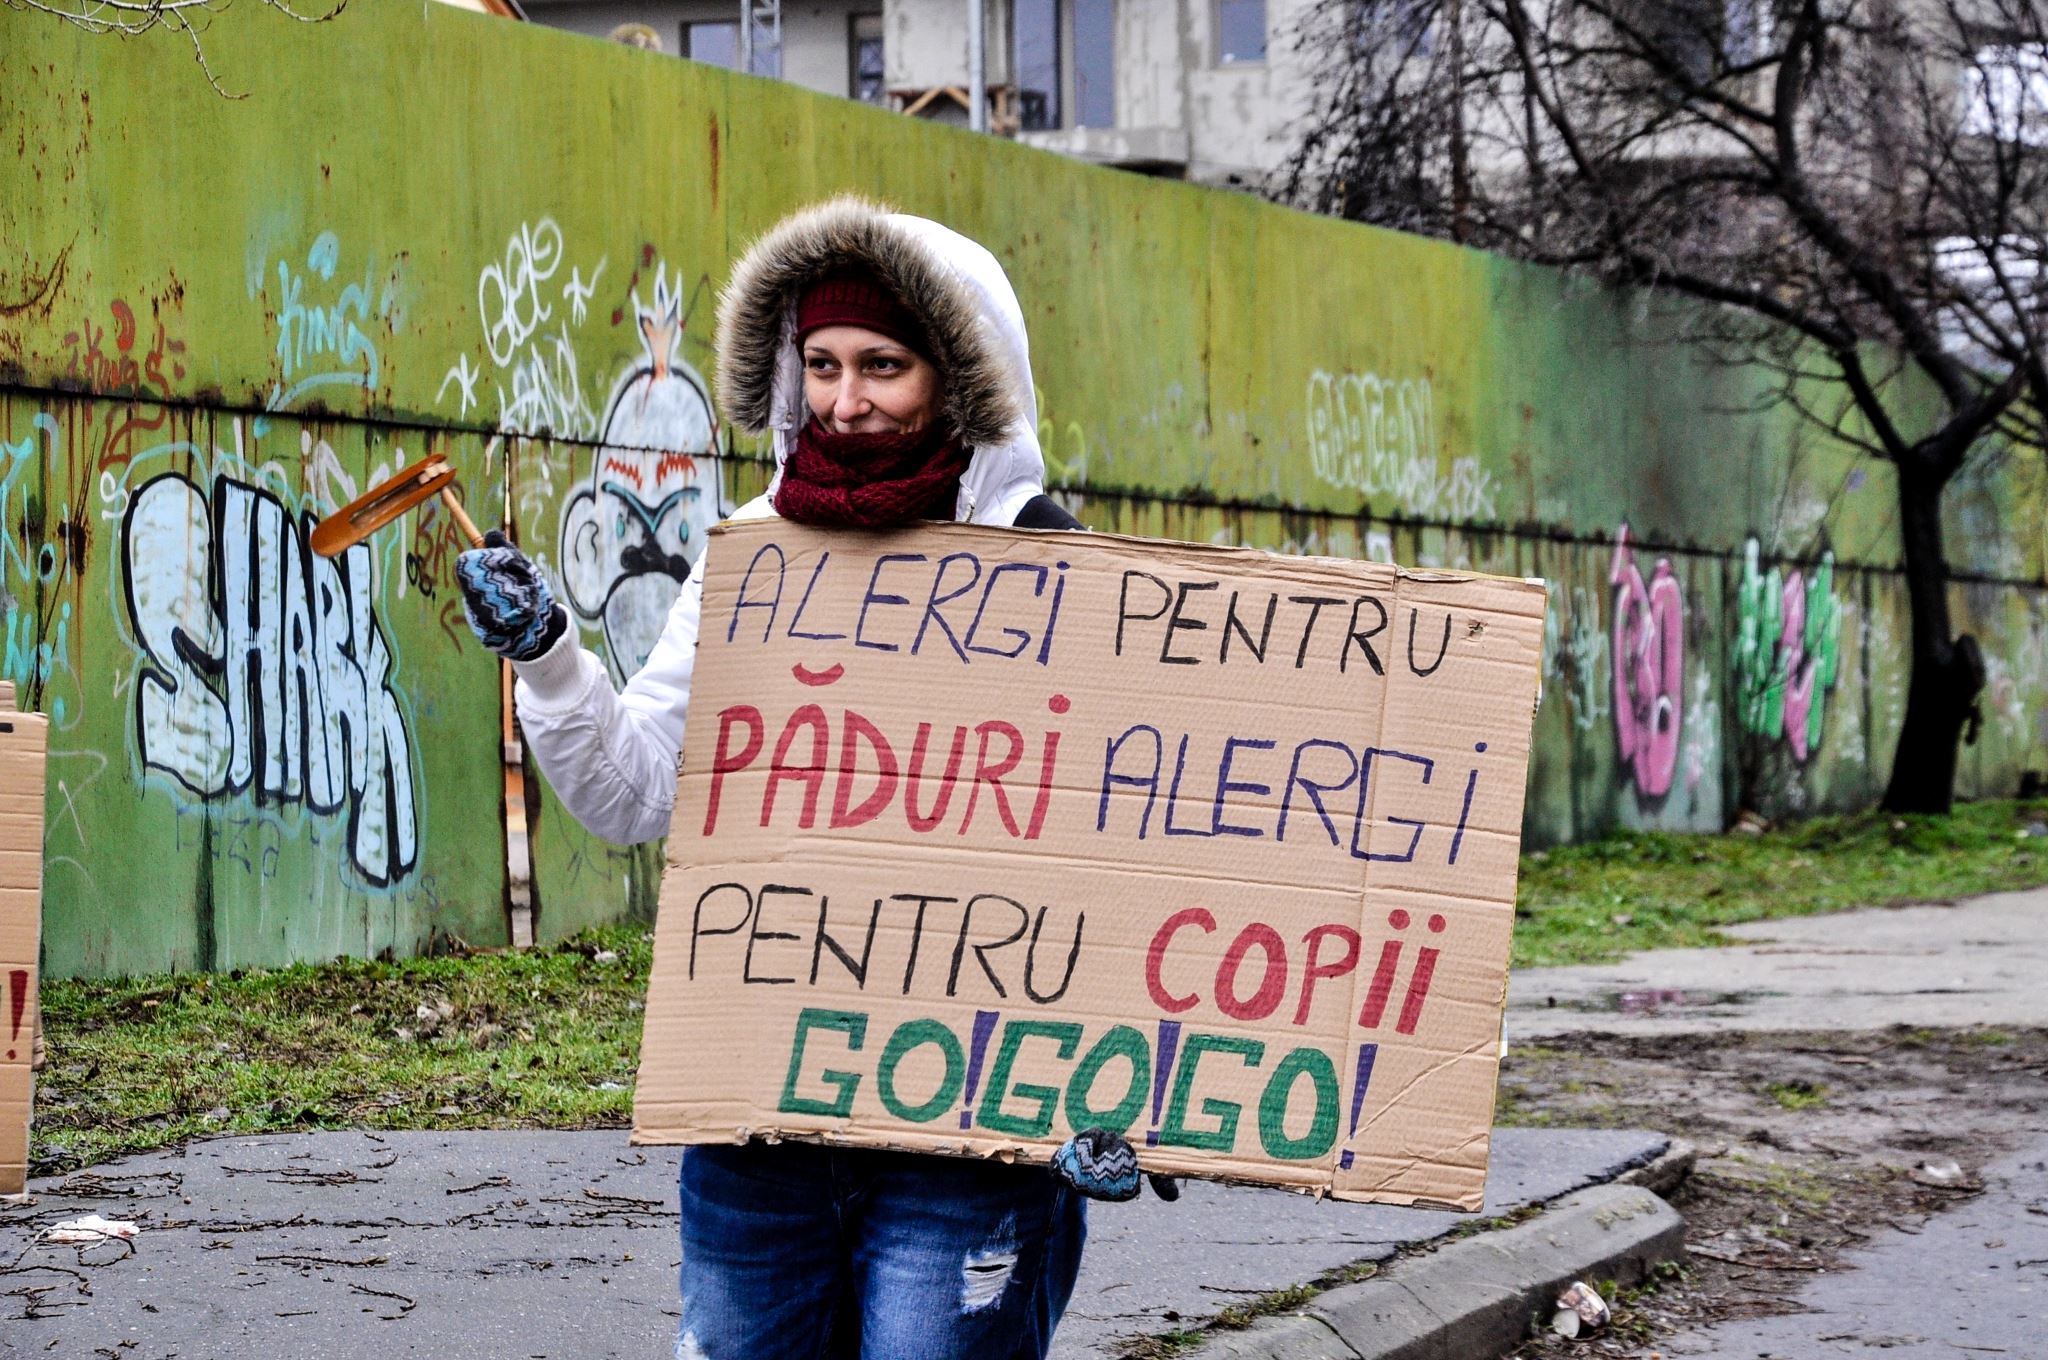 ALERGI PENTRU
PĂDURI ALERGI
PENTRU COPII
GO!GO!GO!
KING
KINGS
SHARK
!